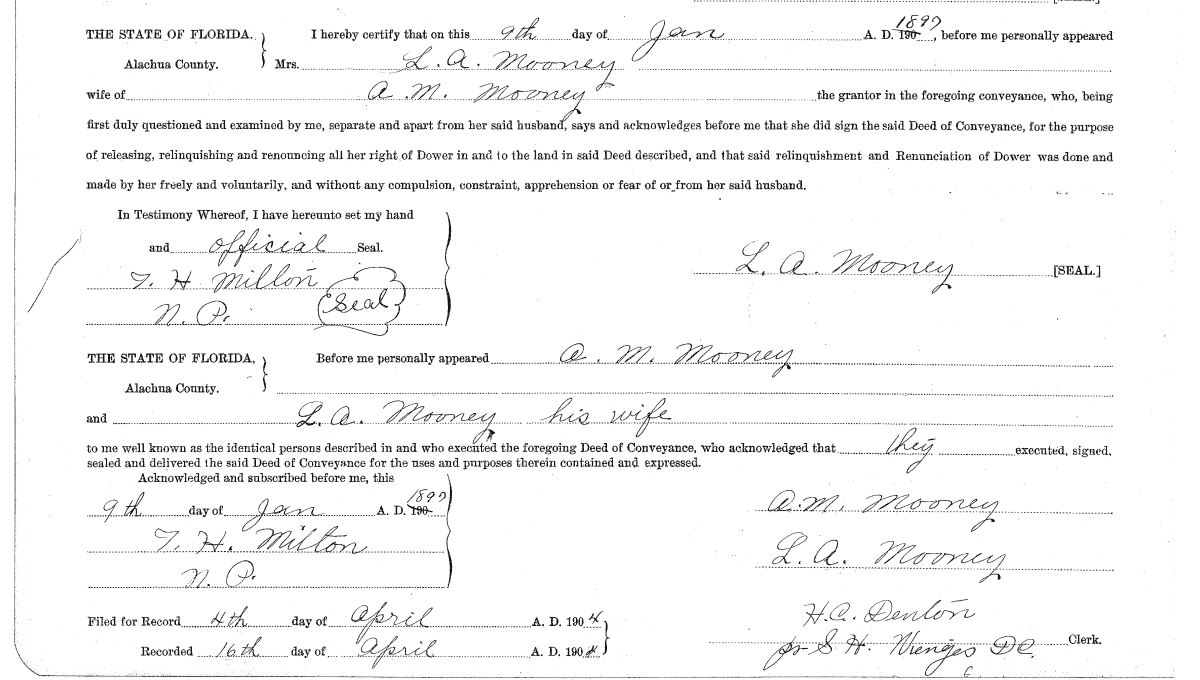 THE STATE OF FLORIDA. I hereby certify that on this 9th day of Jan A. D. 190 1897, before me personally appeared
Alachua County. Mrs. L. A. Mooney
wife of A. M. Mooney the grantor in the foregoing conveyance, who, being
first duly questioned and examined by me, separate and apart from her said husband, says and acknowledges before me that she did sign the said Deed of Conveyance, for the purpose
of releasing, relinquishing and renouncing all her right of Dower in and to the land in said Deed described, and that said relinquishment and Renunciation of Dower was done and
made by her freely and voluntarily, and without any compulsion, constraint, apprehension or fear of or from her said husband.
In Testimony Whereof, I have hereunto set my hand
and official Seal.
T. H. Milton (Seal)
N. P.
L. A. Mooney [SEAL.]
THE STATE OF FLORIDA, Before me personally appeared A. M. Mooney
Alachua County.
and L. A. Mooney his wife
to me well known as the identical persons described in and who executed the foregoing Deed of Conveyance, who acknowledged that they executed, signed,
sealed and delivered the said Deed of Conveyance for the uses and purposes therein contained and expressed.
Acknowledged and subscribed before me, this
9th day of Jan A. D. 190 1897
T. H. Milton
N. P.
A. M. Mooney
L. A. Mooney
Filed for Record 4th day of April A. D. 1904
Recorded 16th day of April A. D. 1904
H. C. Denton
pr S. H. Wienges D.C. Clerk.